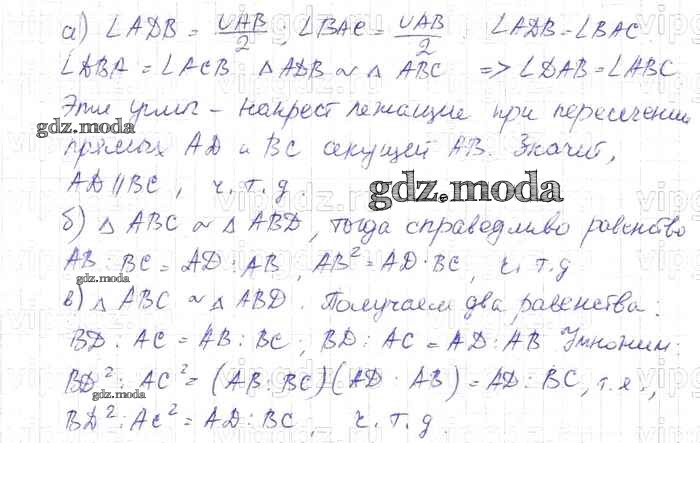 а) ∠ADB = ∪AB/2, ∠BAC = ∪AB/2 ∠ADB = ∠BAC
∠DBA = ∠ACB △ADB ~ △ ABC => ∠DAB = ∠ABC
Эти углы - накрест лежащие при пересечении
gdz.moda
прямых AD и BC секущей AB. Значит,
AD || BC, ч.т.д.
gdz.moda
б) △ ABC ~ △ ABD, тогда справедливо равенство
AB : BC = AD : AB, AB² = AD · BC, ч.т.д
gdz.moda
в) △ ABC ~ △ ABD. Получаем два равенства:
BD : AC = AB : BC; BD : AC = AD : AB Умножим:
BD² : AC² = (AB : BC)(AD : AB) = AD : BC, т.е.,
gdz.moda
BD² : AC² = AD : BC, ч.т.д.